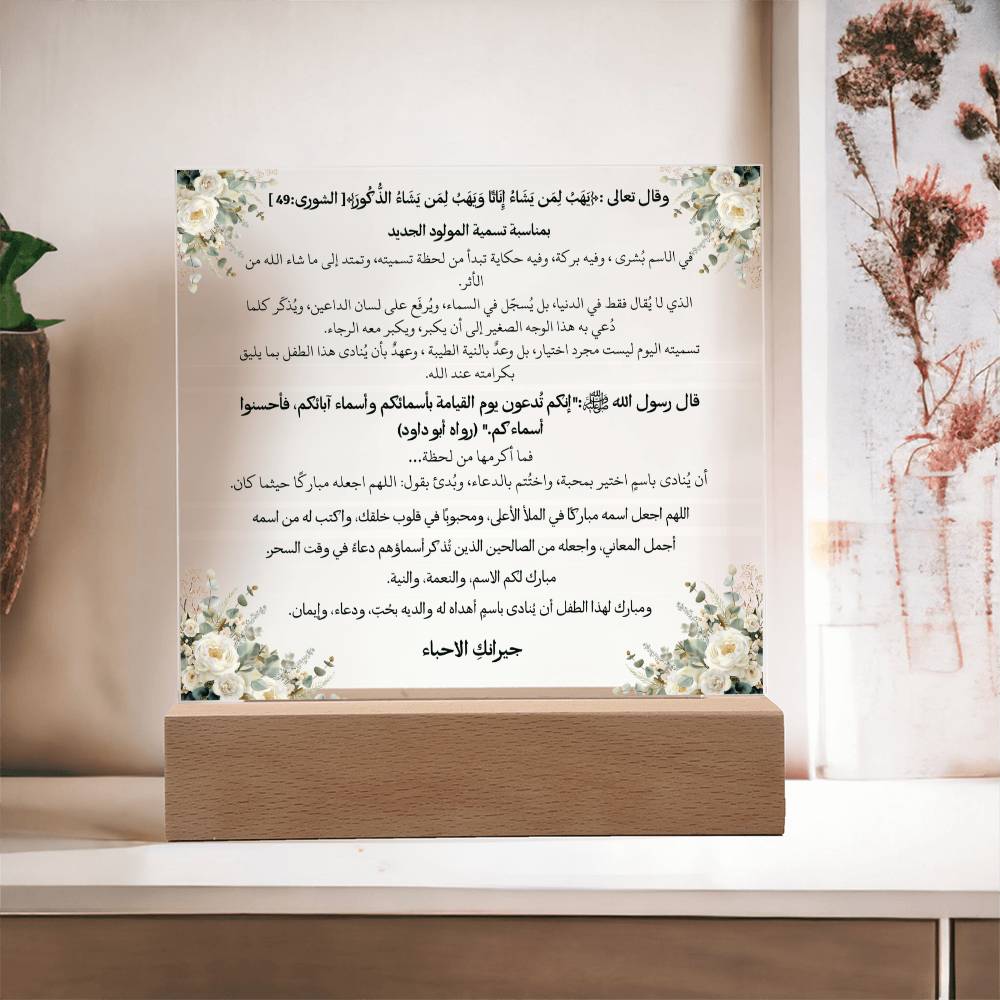 وقال تعالى :﴿يَهَبُ لِمَن يَشَاءُ إِنَاثًا وَيَهَبُ لِمَن يَشَاءُ الذُّكُورَ﴾[ الشورى:49 ]
بمناسبة تسمية المولود الجديد
في الاسم بُشرى ، وفيه بركة، وفيه حكاية تبدأ من لحظة تسميته، وتمتد إلى ما شاء الله من
الأثر.
الذي لا يُقال فقط في الدنيا، بل يُسجّل في السماء، ويُرفَع على لسان الداعين، ويُذكّر كلما
دُعي به هذا الوجه الصغير إلى أن يكبر، ويكبر معه الرجاء.
تسميته اليوم ليست مجرد اختيار، بل وعدٌ بالنية الطيبة ، وعهدٌ بأن يُنادى هذا الطفل بما يليق
بكرامته عند الله.
قال رسول الله ﷺ:"إنكم تُدعون يوم القيامة بأسمائكم وأسماء آبائكم، فأحسنوا
أسماءكم." (رواه أبو داود)
فما أكرمها من لحظة...
أن يُنادى باسمٍ اختير بمحبة، واختُتم بالدعاء، وبُدئ بقول: اللهم اجعله مباركًا حيثما كان.
اللهم اجعل اسمه مباركًا في الملأ الأعلى، ومحبوبًا في قلوب خلقك، واكتب له من اسمه
أجمل المعاني، واجعله من الصالحين الذين تُذكر أسماؤهم دعاءً في وقت السحر.
مبارك لكم الاسم، والنعمة، والنية.
ومبارك لهذا الطفل أن يُنادى باسمٍ أهداه له والديه بحُبّ، ودعاء، وإيمان.
جيرانكِ الاحباء